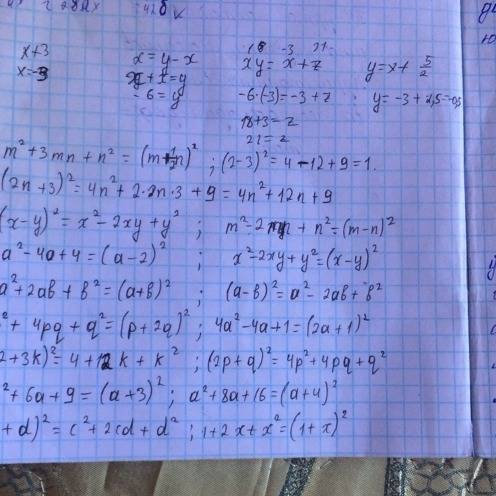 x+3 x=y-x xy=x+z y=x+ 5/2
x=-3 x+x=y -6·(-3)=-3+z y=-3+2,5=-0,5
-6=y 18+3=z
21=z
m²+3mn+n²=(m+n)² ; (2-3)²=4-12+9=1.
(2n+3)²=4n²+2·2n·3+9=4n²+12n+9
(x-y)²=x²-2xy+y² ; m²-2mn+n²=(m-n)²
a²-4a+4=(a-2)² ; x²-2xy+y²=(x-y)²
a²+2ab+b²=(a+b)² ; (a-b)²=a²-2ab+b²
²+4pq+q²=(p+2q)² ; 4a²-4a+1=(2a+1)²
2+3k)²=4+12k+k² ; (2p+q)²=4p²+4pq+q²
²+6a+9=(a+3)² ; a²+8a+16=(a+4)²
+d)²=c²+2cd+d² ; 1+2x+x²=(1+x)²